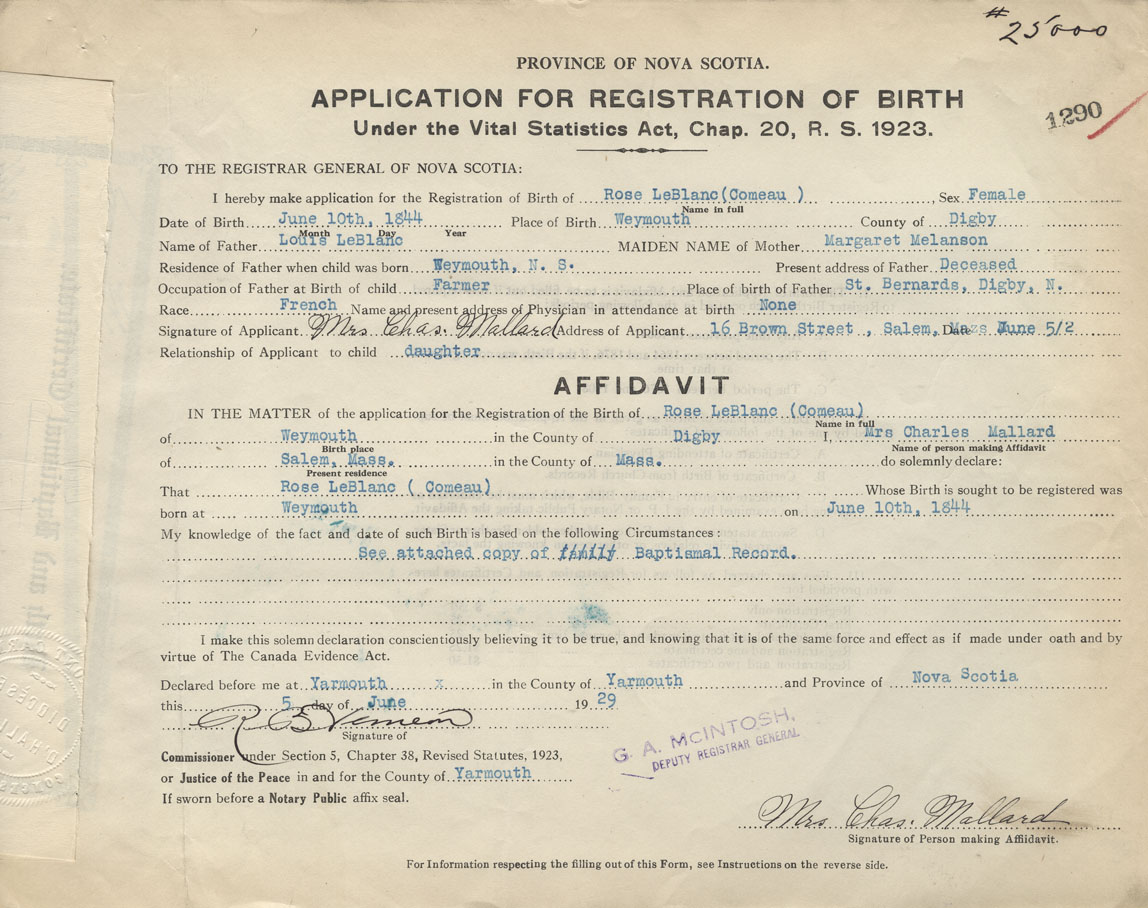 # 25000
PROVINCE OF NOVA SCOTIA.
APPLICATION FOR REGISTRATION OF BIRTH
1290
Under the Vital Statistics Act, Chap. 20, R. S. 1923.
TO THE REGISTRAR GENERAL OF NOVA SCOTIA:
I hereby make application for the Registration of Birth of Rose LeBlanc(Comeau ) , Sex Female
Name in full
Date of Birth June 10th, 1844 Place of Birth Weymouth County of Digby
Month Day Year
Name of Father Louis LeBlanc MAIDEN NAME of Mother Margaret Melanson
Residence of Father when child was born Weymouth, N. S. Present address of Father Deceased
Occupation of Father at Birth of child Farmer Place of birth of Father St. Bernards, Digby, N.
Race French Name and present address of Physician in attendance at birth None
Signature of Applicant Mrs Chas. Mallard Address of Applicant 16 Brown Street , Salem, Date June 5/2
Relationship of Applicant to child daughter
AFFIDAVIT
IN THE MATTER of the application for the Registration of the Birth of Rose LeBlanc (Comeau)
Name in full
of Weymouth in the County of Digby I, Mrs Charles Mallard
Birth place Name of person making Affidavit
of Salem, Mass. in the County of Mass. do solemnly declare:
Present residence
That Rose LeBlanc ( Comeau) Whose Birth is sought to be registered was
born at Weymouth on June 10th, 1844
My knowledge of the fact and date of such Birth is based on the following Circumstances :
See attached copy of Baptismal Record.
I make this solemn declaration conscientiously believing it to be true, and knowing that it is of the same force and effect as if made under oath and by
virtue of The Canada Evidence Act.
Declared before me at Yarmouth x in the County of Yarmouth and Province of Nova Scotia
this 5 day of June 19 29
Signature of
Commissioner under Section 5, Chapter 38, Revised Statutes, 1923,
or Justice of the Peace in and for the County of Yarmouth
If sworn before a Notary Public affix seal.
G. A. McINTOSH,
DEPUTY REGISTRAR GENERAL
Mrs Chas. Mallard
Signature of Person making Affidavit.
For Information respecting the filling out of this Form, see Instructions on the reverse side.